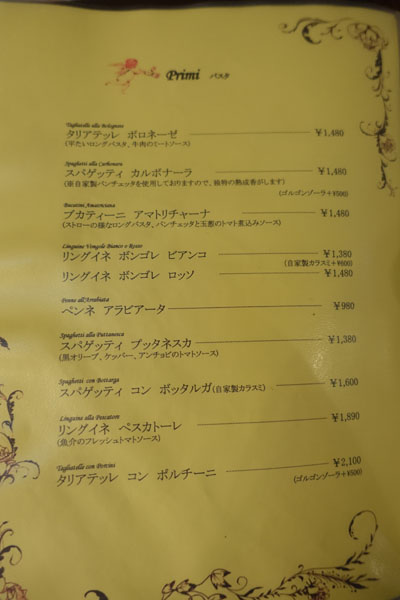 Primi パスタ
Tagliatelle alla Bolognese
タリアテッレ ボロネーゼ ¥1,480
(平たいロングパスタ、牛肉のミートソース)
Spaghetti alla Carbonara
スパゲッティ カルボナーラ ¥1,480
(※自家製パンチェッタを使用しておりますので、独特の熟成香がします)
(ゴルゴンゾーラ+¥500)
Bucatini Amatriciana
ブカティーニ アマトリチャーナ ¥1,480
(ストローの様なロングパスタ、パンチェッタと玉葱のトマト煮込みソース)
Linguine Vongole Bianco o Rosso
リングイネ ボンゴレ ビアンコ ¥1,380
(自家製カラスミ+¥600)
リングイネ ボンゴレ ロッソ ¥1,480
Penne all'Arrabiata
ペンネ アラビアータ ¥980
Spaghetti alla Puttanesca
スパゲッティ プッタネスカ ¥1,380
(黒オリーブ、ケッパー、アンチョビのトマトソース)
Spaghetti con Bottarga
スパゲッティ コン ボッタルガ(自家製カラスミ) ¥1,600
Linguine alla Pescatore
リングイネ ペスカトーレ ¥1,890
(魚介のフレッシュトマトソース)
Tagliatelle con Porcini
タリアテッレ コン ポルチーニ ¥2,100
(ゴルゴンゾーラ+¥500)